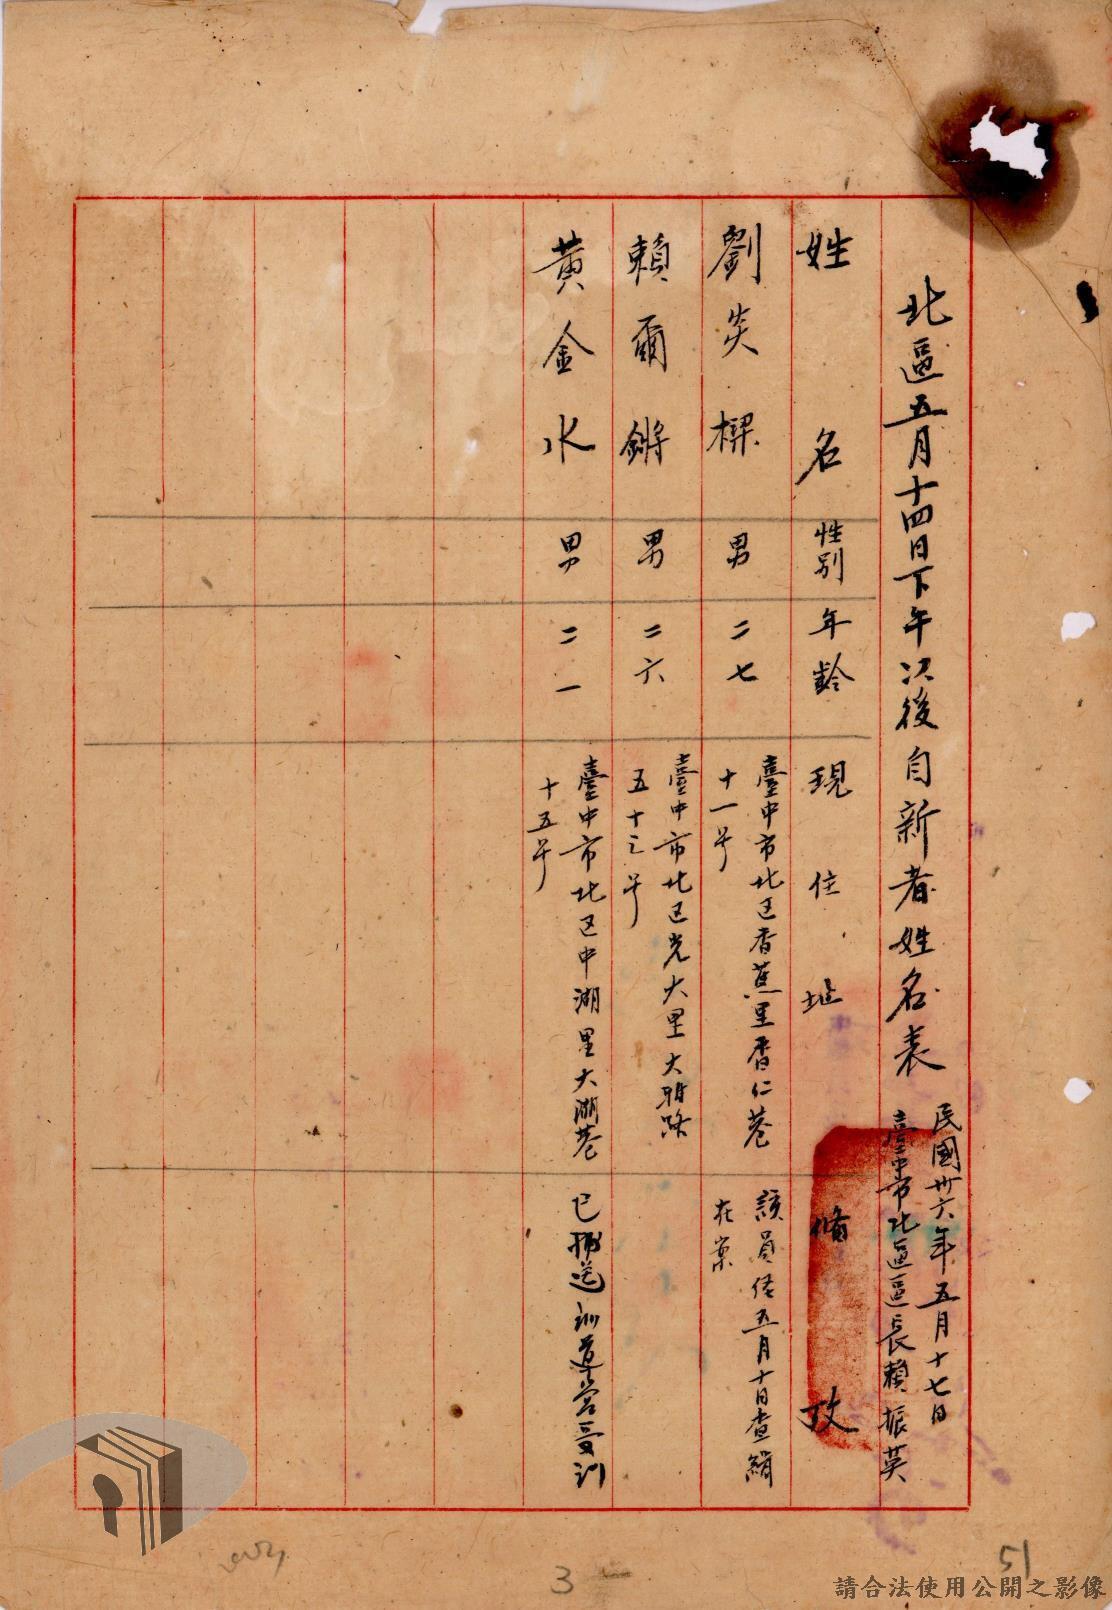 北區五月十四日下午以後自新者姓名表
民國卅六年五月十七日
臺中市北區區長賴振英
姓名 性別 年齡 現住址 備攷
劉炎樑 男 二七 臺中市北区香蕉里香仁巷
十一号
該員経五月十日查緝
在案
賴爾鏘 男 二六 臺中市北区光大里大雅路
五十三号
黃金水 男 二一 臺中市北区中湖里大湖巷
十五号
已捕送訓導営受訓
3
51
請合法使用公開之影像